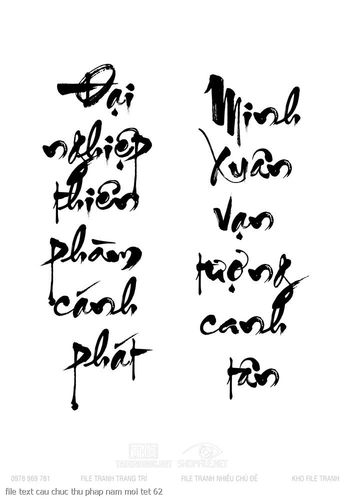 Đại
nghiệp
thiên
phàm
cánh
phát
Minh
Xuân
vạn
tượng
canh
tân
SHOPFILE.NET
0978 969 761 FILE TRANH TRANG TRÍ FILE TRANH NHIỀU CHỦ ĐỀ KHO FILE TRANH
file text cau chuc thu phap nam moi tet 62